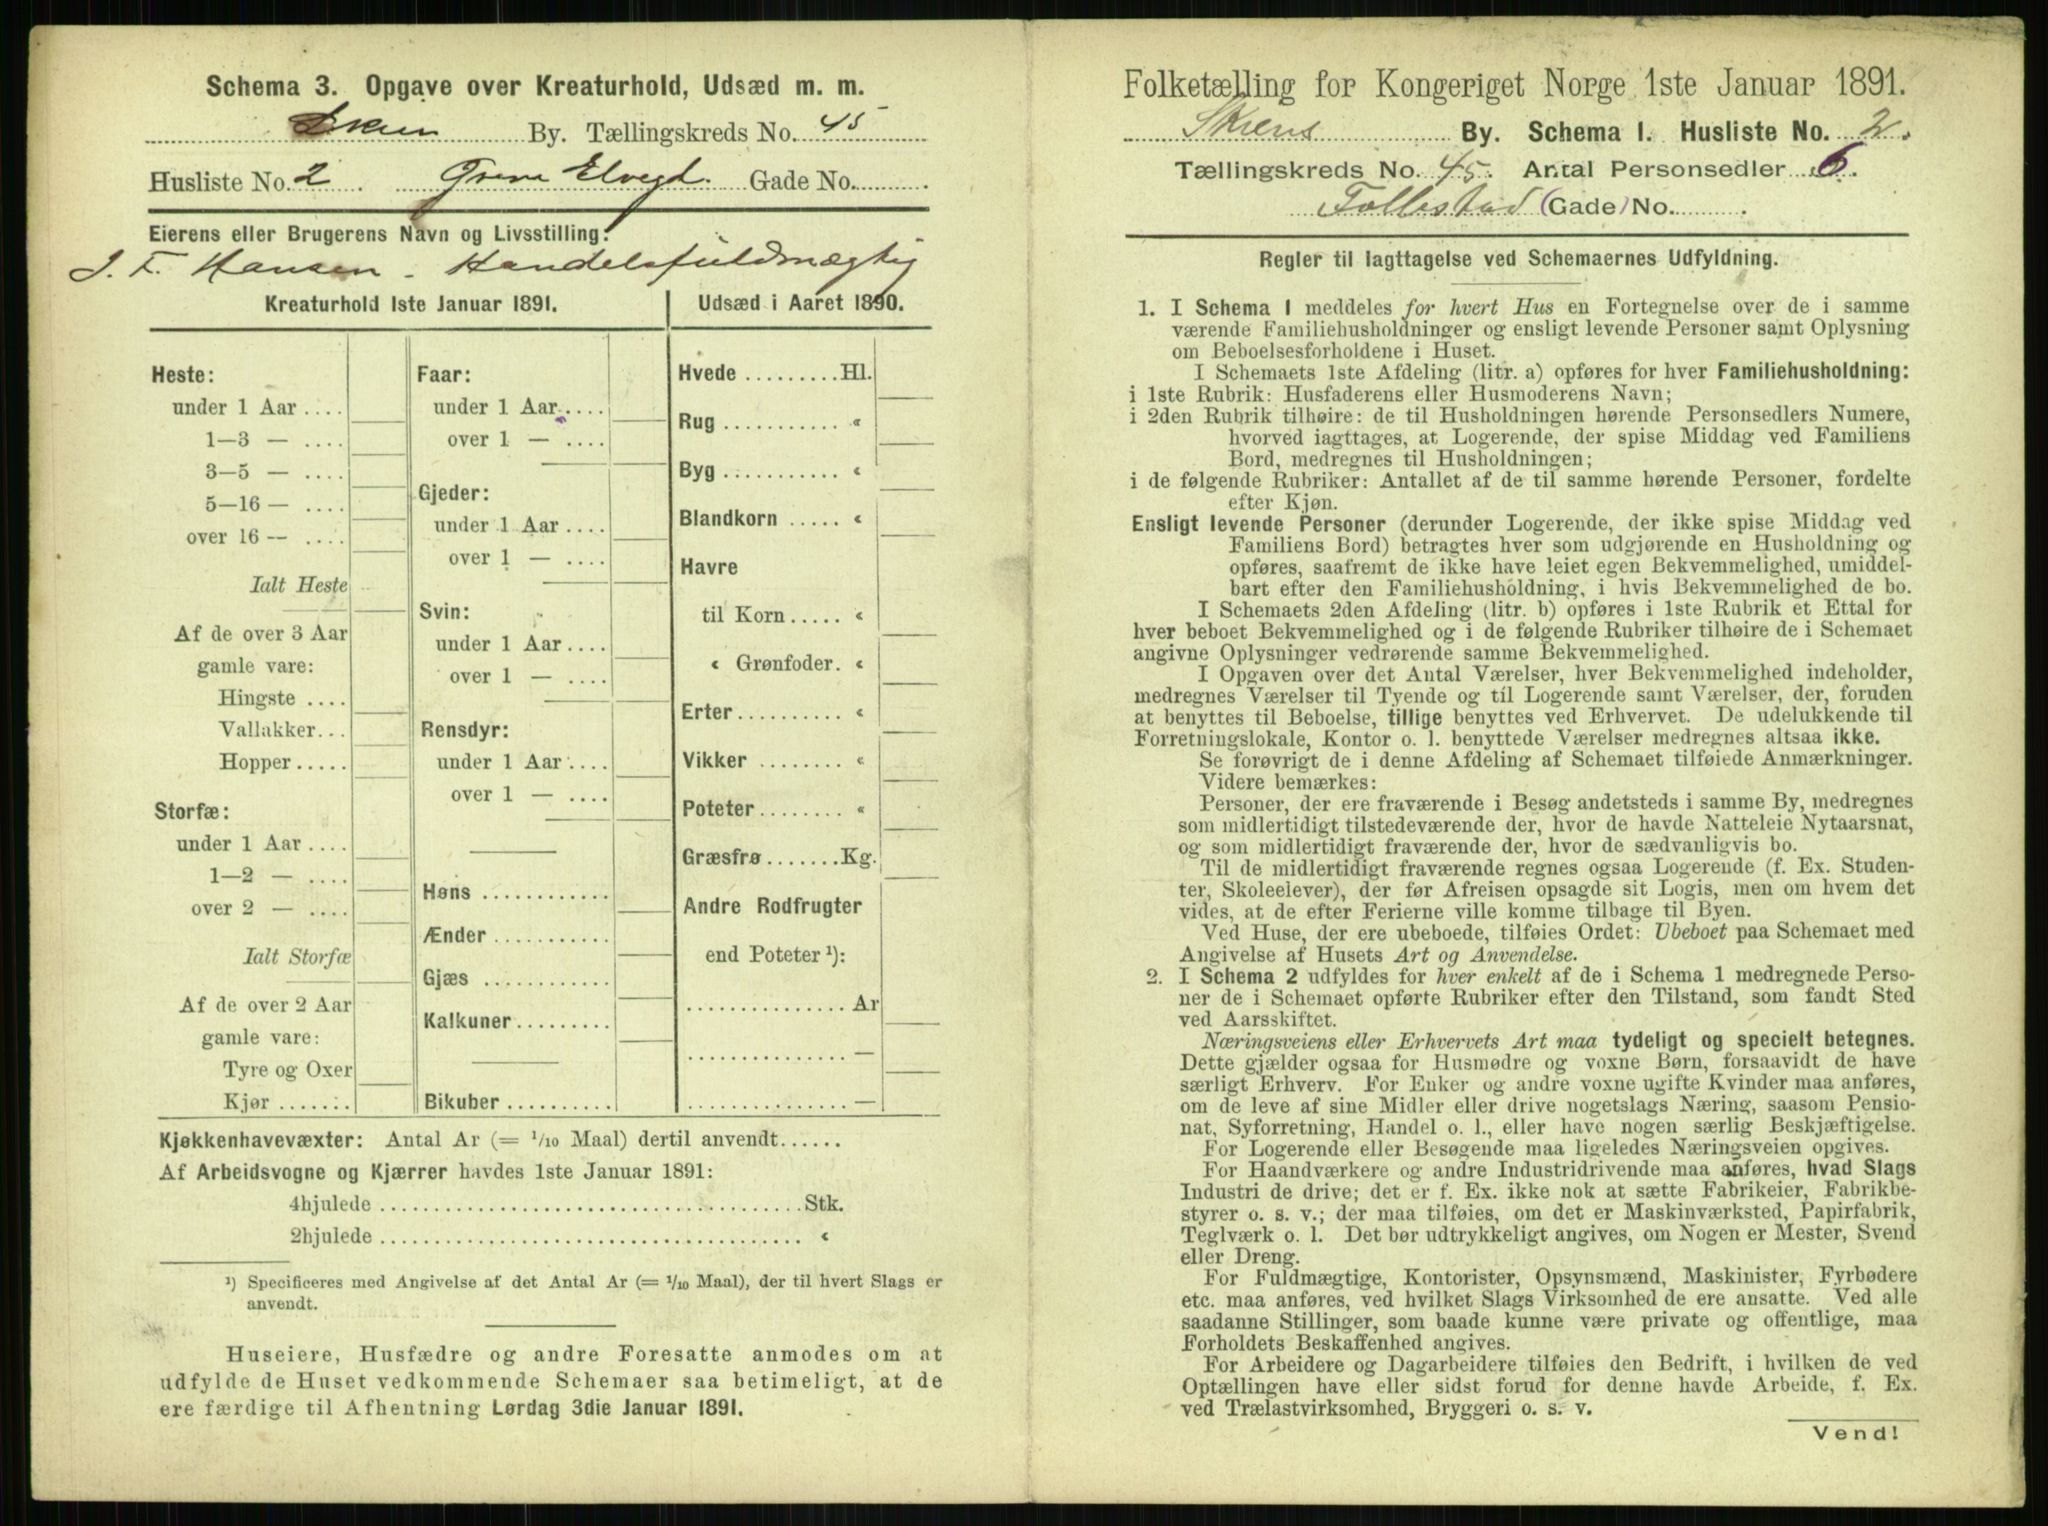 Schema 3. Opgave over Kreaturhold, Udsæd m. m.
Skien By. Tællingskreds No. 45
Husliste No. 2 Elvegd. Gade No.
Eierens eller Brugerens Navn og Livsstilling:
J. F. Hansen - Handelsfuldmægtig
Kreaturhold 1ste Januar 1891.
Heste:
under 1 Aar ....
1—3 — ....
3—5 — ....
5—16 — ....
over 16 — ....
Ialt Heste
Af de over 3 Aar
gamle vare:
Hingste ....
Vallakker...
Hopper.....
Storfæ:
under 1 Aar ....
1—2 — ....
over 2 — ....
Ialt Storfæ
Af de over 2 Aar
gamle vare:
Tyre og Oxer
Kjør .......
Faar:
under 1 Aar ....
over 1 — ....
Gjeder:
under 1 Aar ....
over 1 — ....
Svin:
under 1 Aar ....
over 1 — ....
Rensdyr:
under 1 Aar ....
over 1 — ....
Høns ............
Ænder ...........
Gjæs ............
Kalkuner.........
Bikuber ..........
Udsæd i Aaret 1890.
Hvede .........Hl.
Rug ........... «
Byg ........... «
Blandkorn ..... «
Havre
til Korn ..... «
« Grønfoder. «
Erter.......... «
Vikker ........ «
Poteter ........ «
Græsfrø .......Kg.
Andre Rodfrugter
end Poteter ¹):
............... Ar
............... —
............... —
Kjøkkenhavevæxter: Antal Ar (= 1/10 Maal) dertil anvendt......
Af Arbeidsvogne og Kjærrer havdes 1ste Januar 1891:
4hjulede ....................................Stk.
2hjulede .................................... «
¹) Specificeres med Angivelse af det Antal Ar (= 1/10 Maal), der til hvert Slags er
anvendt.
Huseiere, Husfædre og andre Foresatte anmodes om at
udfylde de Huset vedkommende Schemaer saa betimeligt, at de
ere færdige til Afhentning Lørdag 3die Januar 1891.
Folketælling for Kongeriget Norge 1ste Januar 1891.
Skiens By. Schema 1. Husliste No. 2.
Tællingskreds No. 45. Antal Personsedler 6.
Follestad (Gade) No.
Regler til Iagttagelse ved Schemaernes Udfyldning.
1. I Schema 1 meddeles for hvert Hus en Fortegnelse over de i samme
værende Familiehusholdninger og ensligt levende Personer samt Oplysning
om Beboelsesforholdene i Huset.
I Schemaets 1ste Afdeling (litr. a) opføres for hver Familiehusholdning:
i 1ste Rubrik: Husfaderens eller Husmoderens Navn;
i 2den Rubrik tilhøire: de til Husholdningen hørende Personsedlers Numere,
hvorved iagttages, at Logerende, der spise Middag ved Familiens
Bord, medregnes til Husholdningen;
i de følgende Rubriker: Antallet af de til samme hørende Personer, fordelte
efter Kjøn.
Ensligt levende Personer (derunder Logerende, der ikke spise Middag ved
Familiens Bord) betragtes hver som udgjørende en Husholdning og
opføres, saafremt de ikke have leiet egen Bekvemmelighed, umiddel-
bart efter den Familiehusholdning, i hvis Bekvemmelighed de bo.
I Schemaets 2den Afdeling (litr. b) opføres i 1ste Rubrik et Ettal for
hver beboet Bekvemmelighed og i de følgende Rubriker tilhøire de i Schemaet
angivne Oplysninger vedrørende samme Bekvemmelighed.
I Opgaven over det Antal Værelser, hver Bekvemmelighed indeholder,
medregnes Værelser til Tyende og til Logerende samt Værelser, der, foruden
at benyttes til Beboelse, tillige benyttes ved Erhvervet. De udelukkende til
Forretningslokale, Kontor o. l. benyttede Værelser medregnes altsaa ikke.
Se forøvrigt de i denne Afdeling af Schemaet tilføiede Anmærkninger.
Videre bemærkes:
Personer, der ere fraværende i Besøg andetsteds i samme By, medregnes
som midlertidigt tilstedeværende der, hvor de havde Natteleie Nytaarsnat,
og som midlertidigt fraværende der, hvor de sædvanligvis bo.
Til de midlertidigt fraværende regnes ogsaa Logerende (f. Ex. Studen-
ter, Skoleelever), der før Afreisen opsagde sit Logis, men om hvem det
vides, at de efter Ferierne ville komme tilbage til Byen.
Ved Huse, der ere ubeboede, tilføies Ordet: Ubeboet paa Schemaet med
Angivelse af Husets Art og Anvendelse.
2. I Schema 2 udfyldes for hver enkelt af de i Schema 1 medregnede Perso-
ner de i Schemaet opførte Rubriker efter den Tilstand, som fandt Sted
ved Aarsskiftet.
Næringsveiens eller Erhvervets Art maa tydeligt og specielt betegnes.
Dette gjælder ogsaa for Husmødre og voxne Børn, forsaavidt de have
særligt Erhverv. For Enker og andre voxne ugifte Kvinder maa anføres,
om de leve af sine Midler eller drive nogetslags Næring, saasom Pensio-
nat, Syforretning, Handel o. l., eller have nogen særlig Beskjæftigelse.
For Logerende eller Besøgende maa ligeledes Næringsveien opgives.
For Haandværkere og andre Industridrivende maa anføres, hvad Slags
Industri de drive; det er f. Ex. ikke nok at sætte Fabrikeier, Fabrikbe-
styrer o. s. v.; der maa tilføies, om det er Maskinværksted, Papirfabrik,
Teglværk o. l. Det bør udtrykkeligt angives, om Nogen er Mester, Svend
eller Dreng.
For Fuldmægtige, Kontorister, Opsynsmænd, Maskinister, Fyrbødere
etc. maa anføres, ved hvilket Slags Virksomhed de ere ansatte. Ved alle
saadanne Stillinger, som baade kunne være private og offentlige, maa
Forholdets Beskaffenhed angives.
For Arbeidere og Dagarbeidere tilføies den Bedrift, i hvilken de ved
Optællingen have eller sidst forud for denne havde Arbeide, f. Ex.
ved Trælastvirksomhed, Bryggeri o. s. v.
Vend!